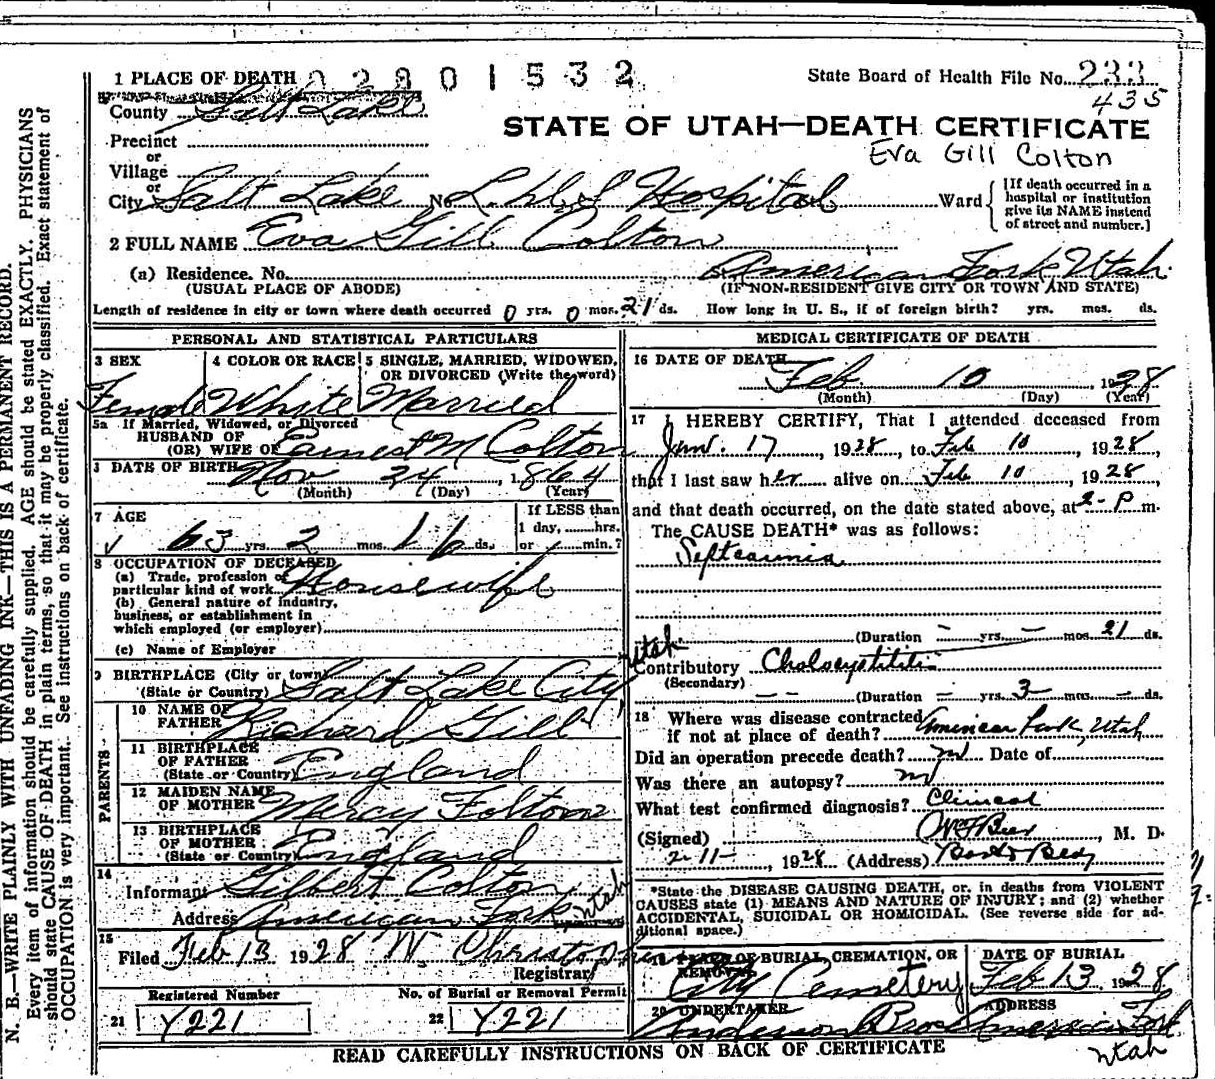 1 PLACE OF DEATH 02801532
State Board of Health File No. 233
435
County Salt Lake
STATE OF UTAH—DEATH CERTIFICATE
Precinct
Eva Gill Colton
or
Village
or
City Salt Lake No. L.D.S Hospital Ward
[If death occurred in a hospital or institution give its NAME instead of street and number.]
2 FULL NAME Eva Gill Colton
(a) Residence. No. American Fork Utah
(USUAL PLACE OF ABODE) (IF NON-RESIDENT GIVE CITY OR TOWN AND STATE)
Length of residence in city or town where death occurred 0 yrs. 0 mos. 21 ds. How long in U. S., if of foreign birth? yrs. mos. ds.
PERSONAL AND STATISTICAL PARTICULARS
3 SEX 4 COLOR OR RACE 5 SINGLE, MARRIED, WIDOWED,
OR DIVORCED (Write the word)
Female White Married
5a If Married, Widowed, or Divorced
HUSBAND OF
(OR) WIFE OF Earnest M Colton
DATE OF BIRTH Nov 24, 1864
(Month) (Day) (Year)
7 AGE If LESS than
1 day, hrs.
63 yrs. 2 mos. 16 ds. or min.?
8 OCCUPATION OF DECEASED
(a) Trade, profession or
particular kind of work Housewife
(b) General nature of industry,
business, or establishment in
which employed (or employer)
(c) Name of Employer
9 BIRTHPLACE (City or town)
(State or Country) Salt Lake City Utah
PARENTS
10 NAME OF
FATHER Richard Gill
11 BIRTHPLACE
OF FATHER
(State or Country) England
12 MAIDEN NAME
OF MOTHER Mercy Foltom
13 BIRTHPLACE
OF MOTHER
(State or Country) England
14
Informant Gilbert Colton
Address American Fork Utah
15
Filed Feb 13 1928 W. Christopherson
Registrar
Registered Number No. of Burial or Removal Permit
21 Y221 22 Y221
MEDICAL CERTIFICATE OF DEATH
16 DATE OF DEATH
Feb 10, 1928
(Month) (Day) (Year)
17 I HEREBY CERTIFY, That I attended deceased from
Jan. 17 1928, to Feb 10, 1928,
that I last saw her alive on Feb 10, 1928,
and that death occurred, on the date stated above, at 2-P m.
The CAUSE DEATH* was as follows:
Septeaumia
(Duration – yrs. – mos. 21 ds.
Contributory Cholocystitis
(Secondary)
(Duration – yrs. 3 mos. – ds.
18 Where was disease contracted
if not at place of death? American Fork, Utah
Did an operation precede death? no Date of
Was there an autopsy? no
What test confirmed diagnosis? Clinical
(Signed) M. D.
2-11-, 1928 (Address)
*State the DISEASE CAUSING DEATH, or, in deaths from VIOLENT
CAUSES state (1) MEANS AND NATURE OF INJURY; and (2) whether
ACCIDENTAL, SUICIDAL OR HOMICIDAL. (See reverse side for ad-
ditional space.)
PLACE OF BURIAL, CREMATION, OR
REMOVAL DATE OF BURIAL
City Cemetery Feb 13 1928
20 UNDERTAKER ADDRESS
Anderson Bros American Fork
Utah
READ CAREFULLY INSTRUCTIONS ON BACK OF CERTIFICATE
N. B.—WRITE PLAINLY WITH UNFADING INK—THIS IS A PERMANENT RECORD.
Every item of information should be carefully supplied. AGE should be stated EXACTLY. PHYSICIANS
should state CAUSE OF DEATH in plain terms, so that it may be properly classified. Exact statement of
OCCUPATION is very important. See instructions on back of certificate.